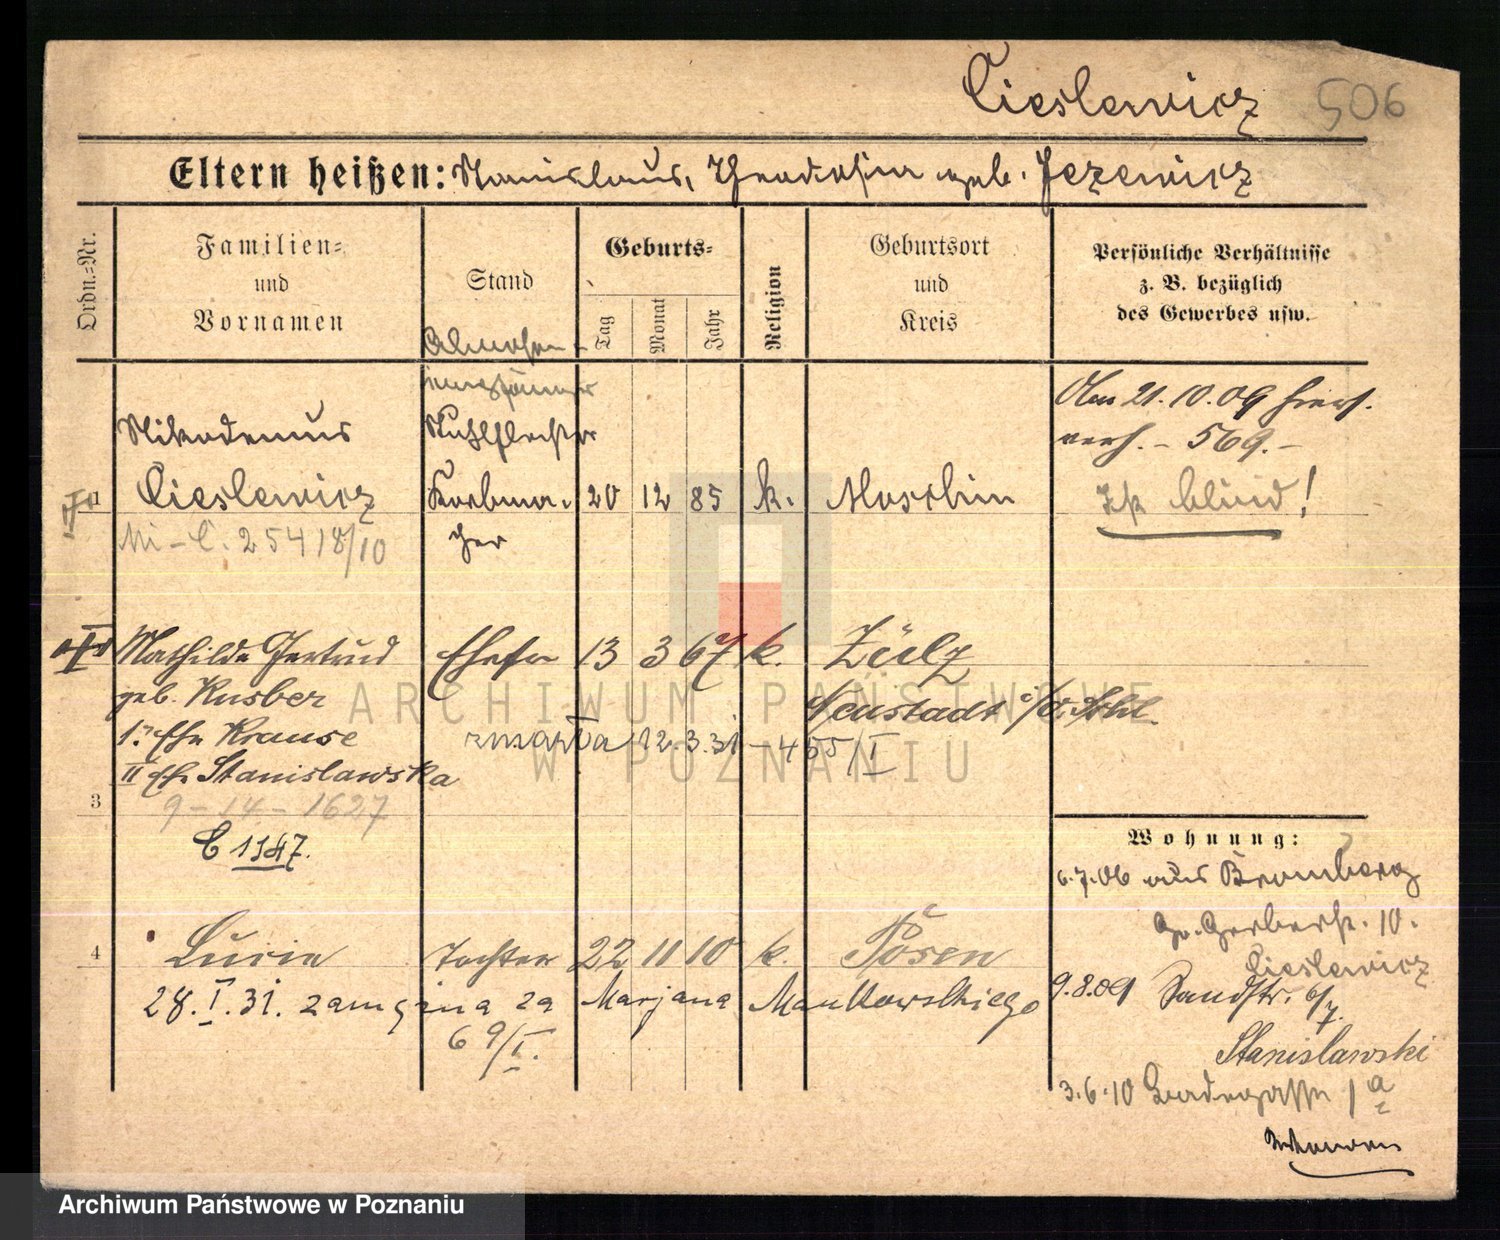 Cieslewicz 506
Eltern heißen: Stanislaus, Theodosia geb. Jezewicz
Ordn.=Nr.
Familien=
und
Vornamen
Stand
Geburts=
Tag
Monat
Jahr
Religion
Geburtsort
und
Kreis
Persönliche Verhältnisse
z. B. bezüglich
des Gewerbes usw.
Almosen-
empfänger
Nikodemus
Stuhlflechter
Am 21.10.09 hiers.
verh. - 569.-
1
Cieslewicz
Korbma-
cher
20 12 85 k. Moschin
Ist blind!
Mathilde Gertrud
geb. Kusber
1. Ehe Krause
II Ehe Stanislawska
Ehefr 13 3 67 k. Zülz
Neustadt
zmarła 12.3.31 - 455/I
3
9-14-1627
4
Lucie Tochter 22 11 10 k. Posen
28.I.31. zamężna za Marjana Mańkowskiego
69/I.
Wohnung:
6.7.06 aus Bromberg
Gr. Gerberstr. 10.
Cieslewicz
9.8.09 Sandstr. 6/7.
Stanislawski
3.6.10 Badegasse 1a
ARCHIWUM PAŃSTWOWE
W POZNANIU
Archiwum Państwowe w Poznaniu